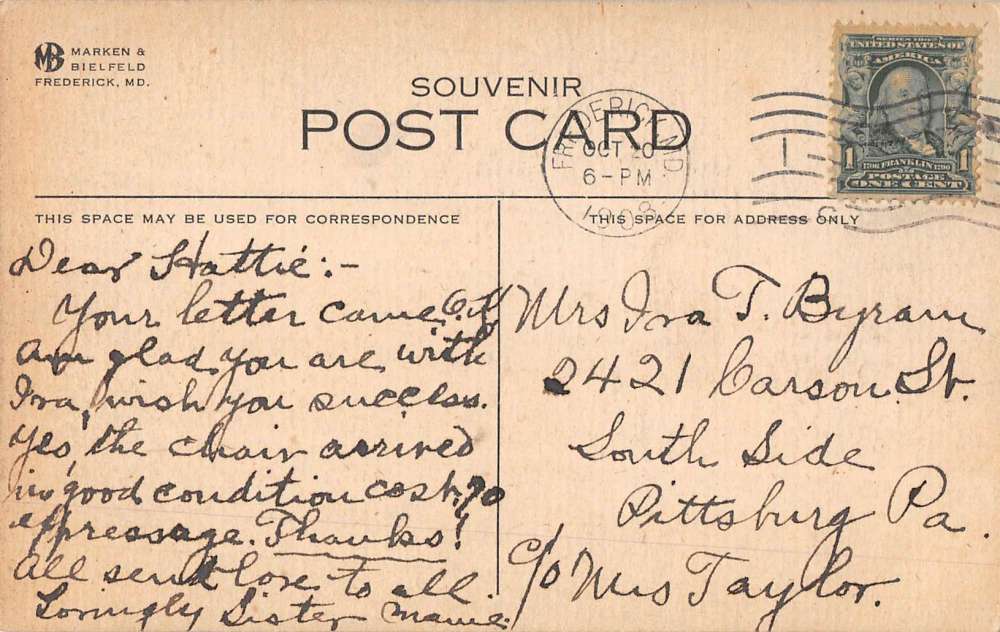 MB MARKEN &
BIELFELD
FREDERICK, MD.
SOUVENIR
POST CARD
FREDERICK, MD.
OCT 20
6-PM
1908
SERIES 1902
UNITED STATES OF
AMERICA
1 1706 FRANKLIN 1790 1
POSTAGE
ONE CENT
THIS SPACE MAY BE USED FOR CORRESPONDENCE
Dear Hattie:-
Your letter came O.K.
Am glad you are with
Ira, wish you success.
Yes, the chair arrived
in good condition cost .70
expressage. Thanks!
All send love to all.
Lovingly Sister Mame.
THIS SPACE FOR ADDRESS ONLY
Mrs Ira T. Byram
2421 Carson St.
South Side
Pittsburg Pa.
c/o Mrs Taylor.